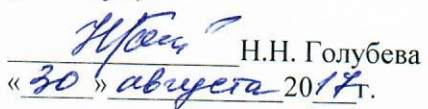 Н.Н. Голубева
«30» августа 2017г.